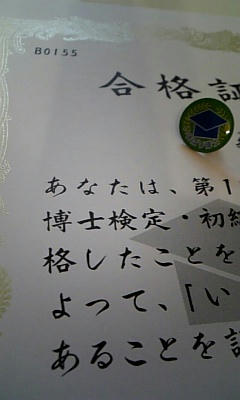 B0155
合格証
あなたは、第1
博士検定・初級
格したことを
よって、「い
あることを